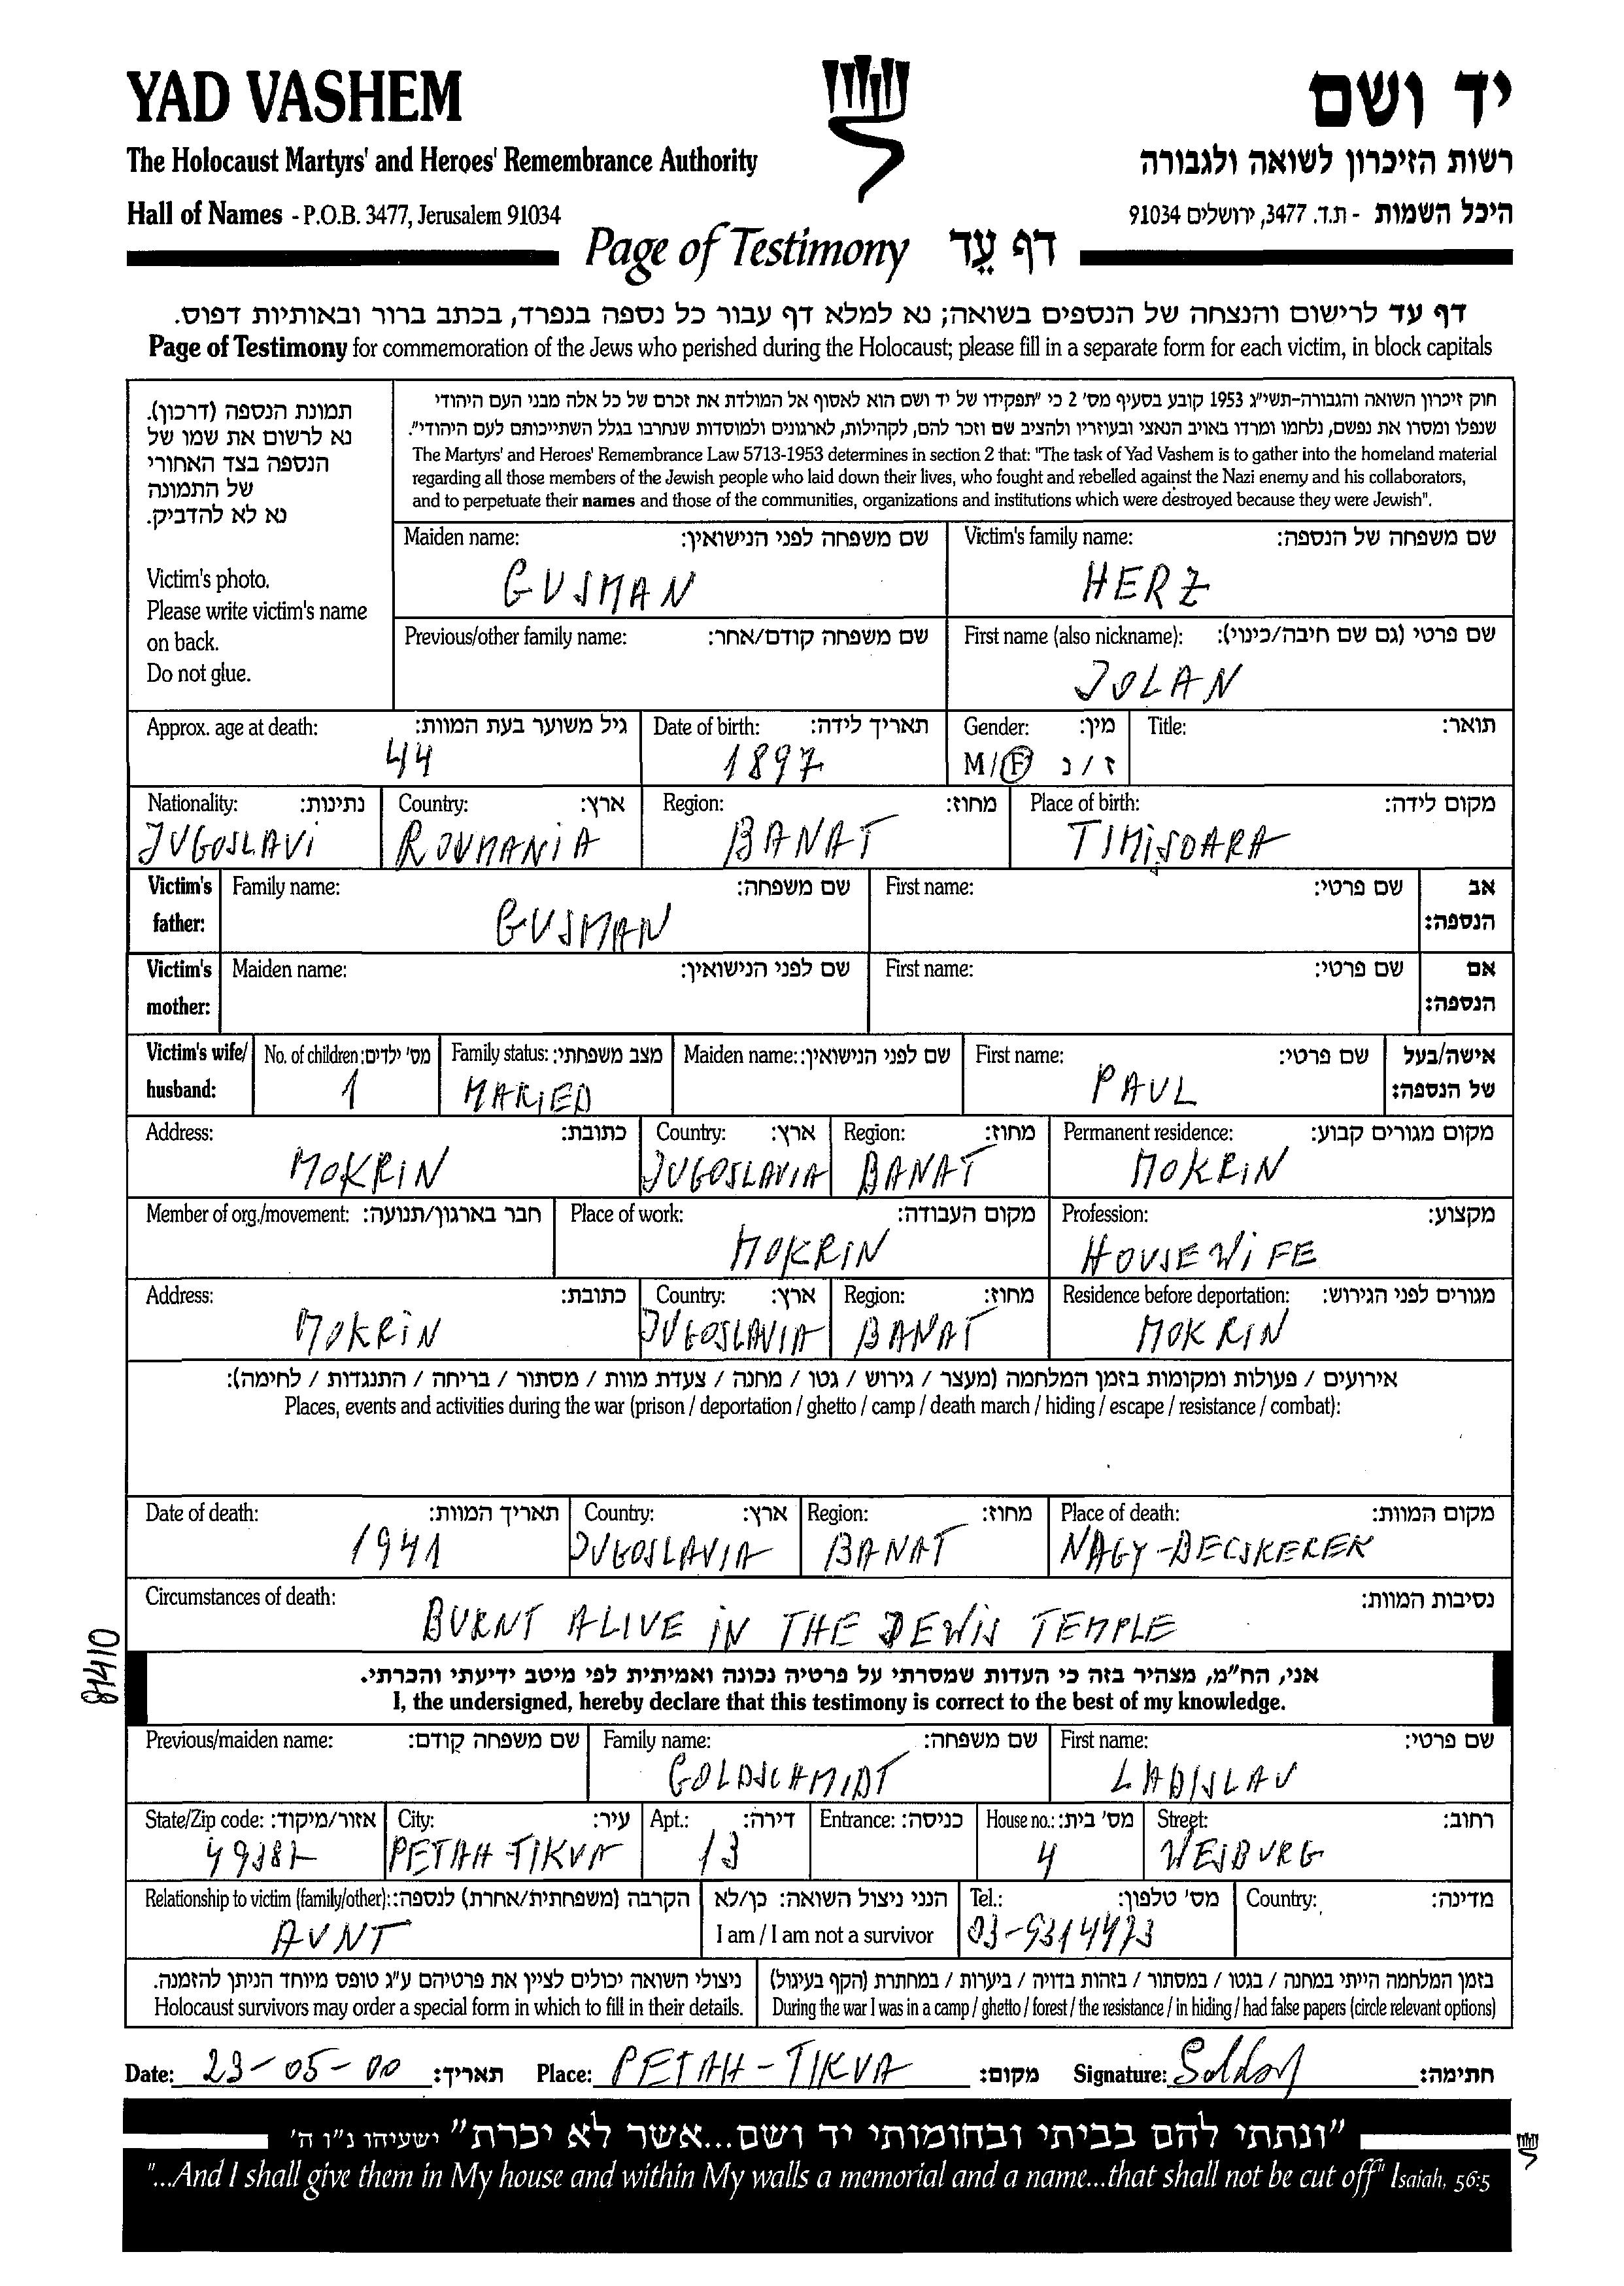 YAD VASHEM
יד ושם
The Holocaust Martyrs' and Heroes' Remembrance Authority
רשות הזיכרון לשואה ולגבורה
Hall of Names - P.O.B. 3477, Jerusalem 91034
היכל השמות - ת.ד. 3477, ירושלים 91034
Page of Testimony דף עֵד
דף עד לרישום והנצחה של הנספים בשואה; נא למלא דף עבור כל נספה בנפרד, בכתב ברור ובאותיות דפוס.
Page of Testimony for commemoration of the Jews who perished during the Holocaust; please fill in a separate form for each victim, in block capitals
תמונת הנספה (דרכון).
נא לרשום את שמו של
הנספה בצד האחורי
של התמונה
נא לא להדביק.
Victim's photo.
Please write victim's name
on back.
Do not glue.
חוק זיכרון השואה והגבורה-תשי"ג 1953 קובע בסעיף מס' 2 כי "תפקידו של יד ושם הוא לאסוף אל המולדת את זכרם של כל אלה מבני העם היהודי
שנפלו ומסרו את נפשם, נלחמו ומרדו באויב הנאצי ובעוזריו ולהציב שם וזכר להם, לקהילות, לארגונים ולמוסדות שנחרבו בגלל השתייכותם לעם היהודי".
The Martyrs' and Heroes' Remembrance Law 5713-1953 determines in section 2 that: "The task of Yad Vashem is to gather into the homeland material
regarding all those members of the Jewish people who laid down their lives, who fought and rebelled against the Nazi enemy and his collaborators,
and to perpetuate their names and those of the communities, organizations and institutions which were destroyed because they were Jewish".
Maiden name: שם משפחה לפני הנישואין:
GUSMAN
Victim's family name: שם משפחה של הנספה:
HERZ
Previous/other family name: שם משפחה קודם/אחר:
First name (also nickname): שם פרטי (גם שם חיבה/כינוי):
JOLAN
Approx. age at death: גיל משוער בעת המוות:
44
Date of birth: תאריך לידה:
1897
Gender: מין:
M / F ז / נ
Title: תואר:
Nationality: נתינות:
JUGOSLAVI
Country: ארץ:
ROUMANIA
Region: מחוז:
BANAT
Place of birth: מקום לידה:
TIMIŞOARA
Victim's father:
Family name: שם משפחה:
GUSMAN
First name: שם פרטי:
אב הנספה:
Victim's mother:
Maiden name: שם לפני הנישואין:
First name: שם פרטי:
אם הנספה:
Victim's wife/ husband:
No. of children: מס' ילדים:
1
Family status: מצב משפחתי:
MARIED
Maiden name: שם לפני הנישואין:
First name: שם פרטי:
PAUL
אישה/בעל של הנספה:
Address: כתובת:
MOKRIN
Country: ארץ:
JUGOSLAVIA
Region: מחוז:
BANAT
Permanent residence: מקום מגורים קבוע:
MOKRIN
Member of org./movement: חבר בארגון/תנועה:
Place of work: מקום העבודה:
MOKRIN
Profession: מקצוע:
HOUSEWIFE
Address: כתובת:
MOKRIN
Country: ארץ:
JUGOSLAVIA
Region: מחוז:
BANAT
Residence before deportation: מגורים לפני הגירוש:
MOKRIN
אירועים / פעולות ומקומות בזמן המלחמה (מעצר / גירוש / גטו / מחנה / צעדת מוות / מסתור / בריחה / התנגדות / לחימה):
Places, events and activities during the war (prison / deportation / ghetto / camp / death march / hiding / escape / resistance / combat):
Date of death: תאריך המוות:
1941
Country: ארץ:
JUGOSLAVIA
Region: מחוז:
BANAT
Place of death: מקום המוות:
NAGY-BECSKEREK
Circumstances of death: נסיבות המוות:
BURNT ALIVE IN THE JEWIS TEMPLE
אני, הח"מ, מצהיר בזה כי העדות שמסרתי על פרטיה נכונה ואמיתית לפי מיטב ידיעתי והכרתי.
I, the undersigned, hereby declare that this testimony is correct to the best of my knowledge.
Previous/maiden name: שם משפחה קודם:
Family name: שם משפחה:
GOLDSCHMIDT
First name: שם פרטי:
LADISLAV
State/Zip code: אזור/מיקוד:
City: עיר:
PETAH-TIKVA
Apt.: דירה:
13
Entrance: כניסה:
House no.: מס' בית:
4
Street: רחוב:
WEJBURG
Relationship to victim (family/other): הקרבה (משפחתית/אחרת) לנספה:
AUNT
הנני ניצול השואה: כן/לא
I am / I am not a survivor
Tel.: מס' טלפון:
03-9314473
Country: מדינה:
ניצולי השואה יכולים לציין את פרטיהם ע"ג טופס מיוחד הניתן להזמנה.
Holocaust survivors may order a special form in which to fill in their details.
בזמן המלחמה הייתי במחנה / בגטו / במסתור / בזהות בדויה / ביערות / במחתרת (הקף בעיגול)
During the war I was in a camp / ghetto / forest / the resistance / in hiding / had false papers (circle relevant options)
Date: 23-05-00 תאריך: Place: PETAH-TIKVA מקום: Signature: חתימה:
"ונתתי להם בביתי ובחומותי יד ושם...אשר לא יכרת" ישעיהו נ"ו ה'
"...And I shall give them in My house and within My walls a memorial and a name...that shall not be cut off" Isaiah, 56:5